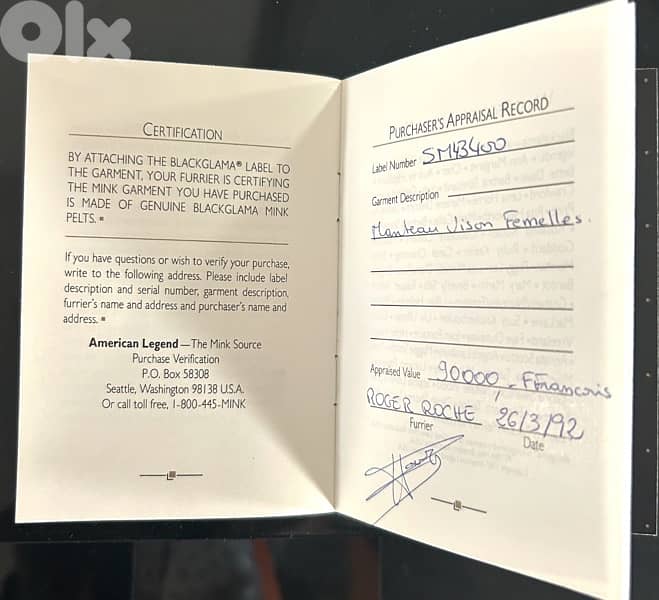 OLX
CERTIFICATION
BY ATTACHING THE BLACKGLAMA® LABEL TO
THE GARMENT, YOUR FURRIER IS CERTIFYING
THE MINK GARMENT YOU HAVE PURCHASED
IS MADE OF GENUINE BLACKGLAMA MINK
PELTS. ■
If you have questions or wish to verify your purchase,
write to the following address. Please include label
description and serial number, garment description,
furrier's name and address and purchaser's name and
address. ■
American Legend—The Mink Source
Purchase Verification
P.O. Box 58308
Seattle, Washington 98138 U.S.A.
Or call toll free, 1-800-445-MINK
PURCHASER'S APPRAISAL RECORD
Label Number SM43400
Garment Description
Manteau Vison Femelles.
Appraised Value 90000,- FFrancois
ROGER ROCHE 26/3/92
Furrier Date